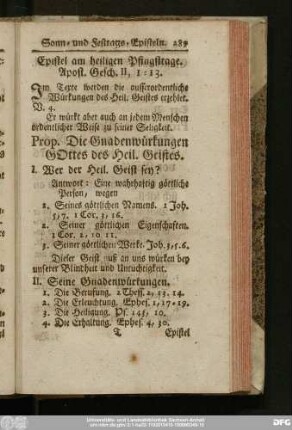 Sonn- und Festtags-Episteln. 289
Epistel am heiligen Pfingsttage.
Apost. Gesch. II, 1:13.
Im Texte werden die ausserordentliche
Würkungen des Heil. Geistes erzehlet.
V. 4.
Er würkt aber auch an jedem Menschen
ordentlicher Weise zu seiner Seligkeit.
Prop. Die Gnadenwürkungen
GOttes des Heil. Geistes.
I. Wer der Heil. Geist sey?
Antwort: Eine wahrhaftig göttliche
Person, wegen
1. Seines göttlichen Namens. 1 Joh.
5, 7. 1 Cor. 3, 16.
2. Seiner göttlichen Eigenschaften.
1 Cor. 2, 10. 11.
3. Seiner göttlichen Werke. Joh. 3, 5. 6.
Dieser Geist muß an uns würken bey
unserer Blindheit und Untüchtigkeit.
II. Seine Gnadenwürkungen.
1. Die Beruffung. 2 Thess. 2, 13. 14.
2. Die Erleuchtung. Ephes. 1, 17-19.
3. Die Heiligung. Ps. 143, 10.
4. Die Erhaltung. Ephes. 4, 30.
T Epistel